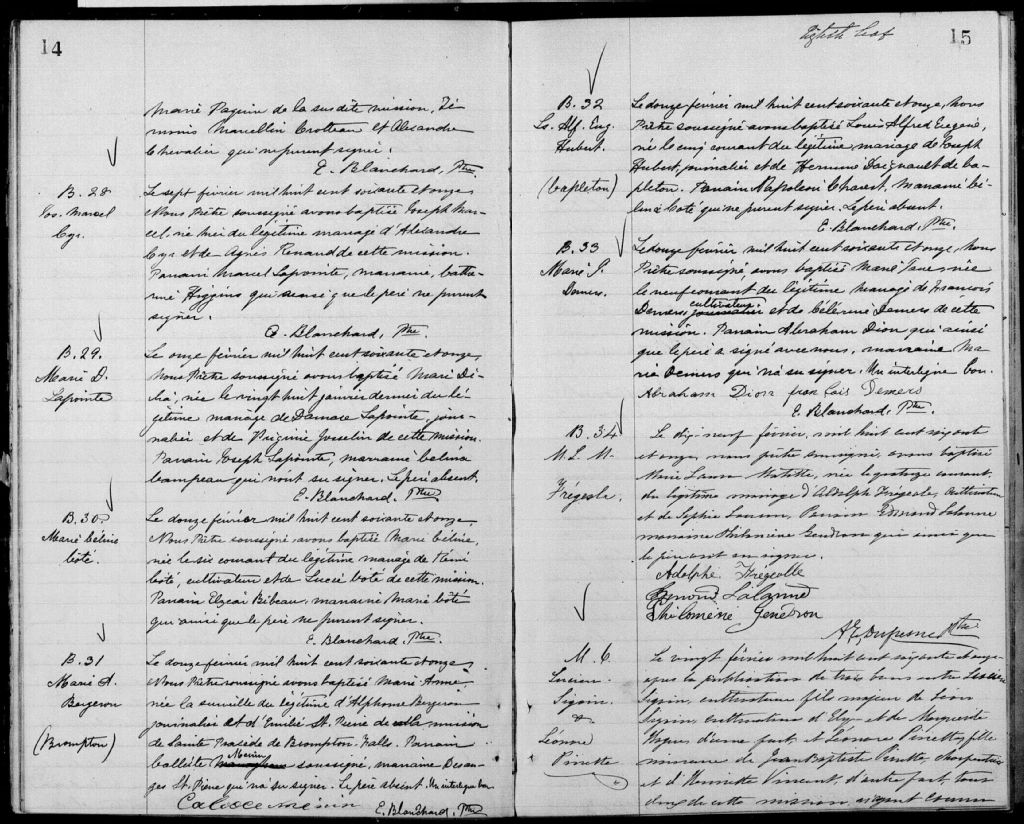 14
Marie Paquin de la susdite mission. Té-
moins Marcellin Crotteau et Alexandre
Chevalier qui ne purent signer.
E. Blanchard, Ptre
B. 28
Jos. Marcel
Cyr.
Le sept février mil huit cent soixante et onze,
Nous Prêtre soussigné avons baptisé Joseph Mar-
cel, né hier du légitime mariage d'Alexandre
Cyr et de Agnès Renaud de cette mission.
Parrain Marcel Lapointe, marraine, Cathe-
rine Higgins qui ainsi que le père ne purent
signer.
E. Blanchard, Ptre
B. 29.
Marie D.
Lapointe
Le onze février mil huit cent soixante et onze,
Nous Prêtre soussigné avons baptisé Marie Dé-
lia, née le vingt huit janvier dernier du lé-
gitime mariage de Damase Lapointe, jour-
nalier et de Virginie Josselin de cette mission.
Parrain Joseph Lapointe, marraine Célina
Campeau qui n'ont su signer. Le père absent.
E. Blanchard, Ptre
B. 30
Marie Célina
Côté.
Le douze février mil huit cent soixante et onze
Nous Prêtre soussigné avons baptisé Marie Célina,
née le six courant du légitime mariage de Rémi
Côté, cultivateur et de Lucie Côté de cette mission.
Parrain Elzéar Bibeau, marraine Marie Côté
qui ainsi que le père ne purent signer.
E. Blanchard, Ptre
B. 31
Marie A.
Bergeron
(Brompton)
Le douze février mil huit cent soixante et onze,
Nous Prêtre soussigné avons baptisé Marie Anne,
née la surveille du légitime d'Alphonse Bergeron
journalier et d'Emilie St. Pierre de la mission
de Sainte Praxède de Brompton Falls. Parrain
Calixte soussigné, marraine Desan-
ges St. Pierre qui n'a su signer. Le père absent. Un interligne bon
E. Blanchard, Ptre
Eighth leaf
15
B. 32
Ls. Alf. Eug.
Hubert.
(Capleton)
Le douze février mil huit cent soixante et onze, Nous
Prêtre soussigné avons baptisé Louis Alfred Eugène,
né le cinq courant du légitime mariage de Joseph
Hubert, journalier et de Hermine Daignault de Ca-
pleton. Parrain Napoléon Charest, Marraine Cé-
lina Coté qui ne purent signer. Le père absent.
E. Blanchard, Ptre
B. 33
Marie J.
Demers.
Le douze février mil huit cent soixante et onze, nous
Prêtre soussigné, avons baptisé Marie Jane née
le neuf courant du légitime mariage de François
cultivateur
Demers journalier et de Célérine Demers de cette
mission. Parrain Abraham Dion qui ainsi
que le père a signé avec nous, marraine Ma-
rie Demers qui n'a su signer. Un interligne bon.
Abraham Dion fran Cois Demers
E. Blanchard, Ptre.
B. 34
M. L. M.
Frégeole.
Le dix-neuf février, mil huit cent soixante
et onze, nous prêtre soussigné, avons baptisé
Marie Laura Matilte, née le quatorze courant,
du légitime mariage d'Adolphe Frégeole, cultivateur
et de Sophie Parrain Edmond Lalanne
marraine Philomène Gendron qui ainsi que
le père ont su signer.
Adolphe Frégeolle
Edmond Lalanne
Philomène Gendron
A E Dufresne Ptre
M. 6.
Lucien
Sigouin.
&
Léonore
Pinette
Le vingt février mil huit cent soixante et onze
après la publication de trois bans entre Lucien
Sigouin, cultivateur fils majeur de Léon
Sigouin, cultivateur et de Marguerite
d'une part, et Léonore Pinette, fille
mineure de Jean Baptiste Pinette, charpentier
et d'Henriette Vincent, d'autre part, tous
deux de cette mission, n'ayant connu